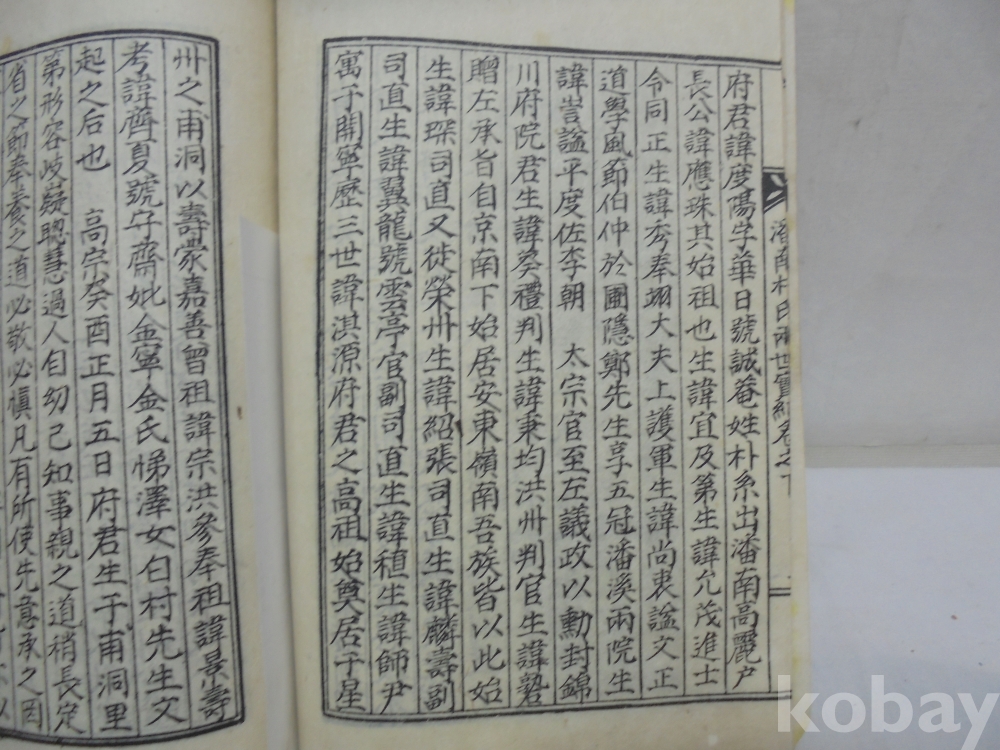 潘南朴氏兩世實紀卷之下
府君諱度陽字華日號誠菴姓朴系出潘南高麗户
長公諱應珠其始祖也生諱宜及第生諱允茂進士
令同正生諱秀奉翊大夫上護軍生諱尚衷諡文正
道學風節伯仲於圃隱鄭先生享五冠潘溪兩院生
諱訔諡平度佐李朝 太宗官至左議政以勳封錦
川府院君生諱葵禮判生諱秉均洪州判官生諱
贈左承旨自京南下始居安東嶺南吾族皆以此始
生諱琛司直又徙榮州生諱紹張司直生諱麟壽副
司直生諱翼龍號雲亭官副司直生諱稙生諱師尹
寓于開寧歷三世諱淇源府君之高祖始奠居于星
州之甫洞以壽蒙嘉善曾祖諱宗洪參奉祖諱景壽
考諱齊夏號守齋妣金寧金氏悌澤女白村先生文
起之后也 高宗癸酉正月五日府君生于甫洞里
第形容岐嶷聰慧過人自幼已知事親之道稍長定
省之節奉養之道必敬必愼凡有所使先意承之因
kobay